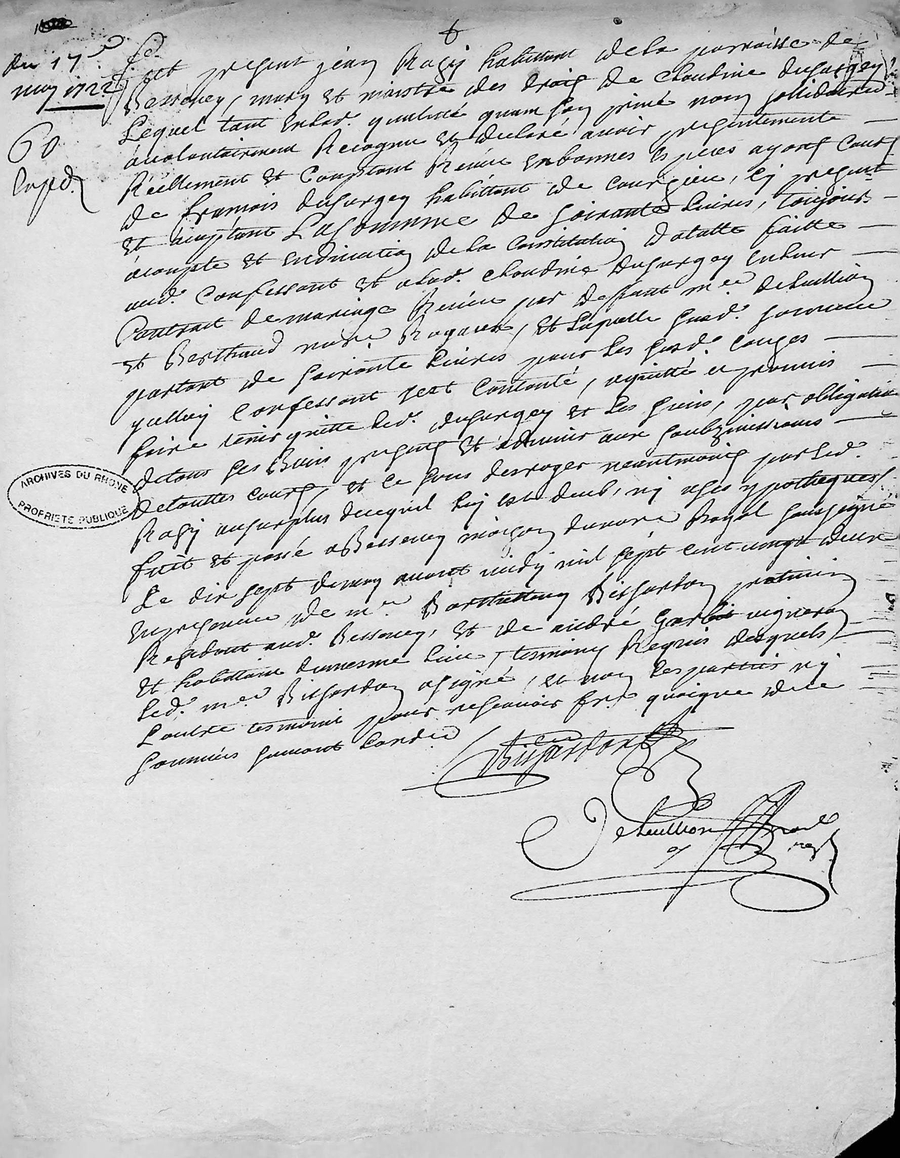 du 17e
may 1722
60
Exped.
fut present jean Razy habittant de la parroisse de
Bessenay, mary et maistre des drois de Claudine dusurgey
Lequel tant en lad. quallité quam son privé nom sollidairemt
a volontairemen Recognu et declaré avoir presentemente
Réellement et Comptant Reseu en bonnes espices ayant Cours
de francois dusurgey habittant de courzieu, icy present
et aceptant La somme de soixante livres, toujour
acompte et en diminution de la Constitution datalle faitte
aud. Confessant et a lad. Claudine Dusurgey en leur
Contrait de mariage Reseu par deffunt me. Dehuillion
et Berthaud notre. Royaux, et laquelle susd. somme
partant de soixante livres pour les susd. Causes
yalluy Confessant sest Contenté, en quitte et promis
faire tenir quitte led. dusurgey et les siens, par obligation
de tous ses biens presents et advenir aux soubzmissions
de touttes cours, et ce sans desroger neantmoins par led.
Razy au surplus de ce quil luy est deub, ny a ses ypotheques,
fait et passé a Bessenay maison du notre Royal soussigné
Le dix sept de may avant midy mil sept cent vingt deux
en presence de me Barthellemy Bissardon praticien
Residant aud. Bessenay, et de andré garbit vigneron
et habittant du mesme lieu, tesmoins Requis desquels
led. me Bissardon a signé, et non les parties ny
Lautre tesmoint pour ne scavoir fre quoique de ce
sommés suivant Lordce
Bissardon
Dehuillion
notre
ARCHIVES DU RHONE
PROPRIETE PUBLIQUE